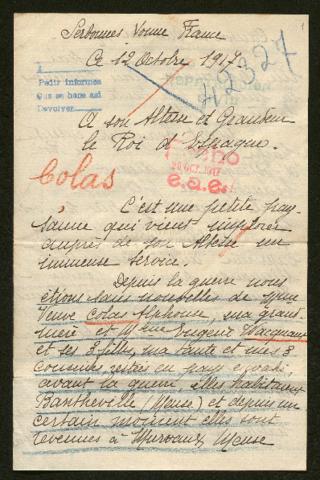 Serbonnes Yonne France
Ce 12 Octobre 1917
42327
A
Pedir informes
Que se hace asi
Devolver
A son Altesse et Grandeur
le Roi d'Espagne.
20 OCT. 1917
e.a.e.
Colas
C'est une petite pay-
sanne qui vient implorer
auprès de son Altesse un
immense service.
Depuis la guerre nous
étions sans nouvelles de Mme
Veuve Colas Alphonse, ma grand
mère et Mme Eugénie
et ses 3 filles, ma tante et mes 3
cousines, restées en pays envahi,
avant la guerre, elles habitaient
Bantheville (Meuse) et depuis un
certain moment elles sont
revenues à Murvaux Meuse